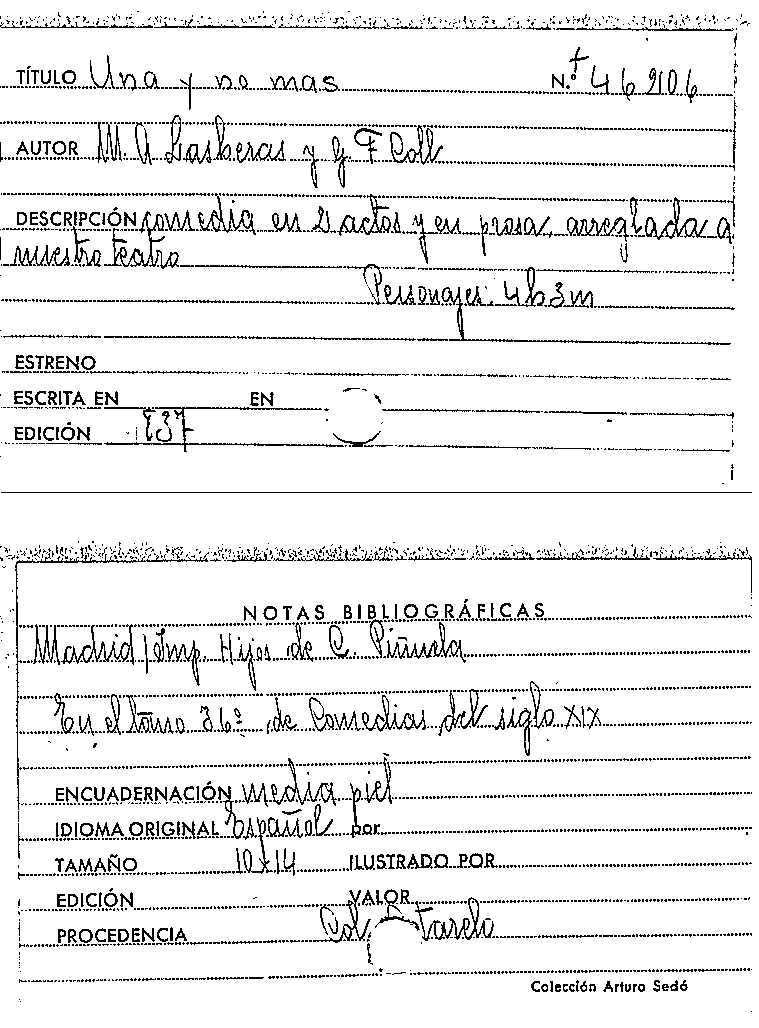 TÍTULO Una y no mas N.º 46206
AUTOR M. A. Lasheras y G. F Coll
DESCRIPCIÓN comedia en 2 actos y en prosa, arreglada a
nuestro teatro
Personajes: 4h3m
ESTRENO
ESCRITA EN EN
EDICIÓN 1837
NOTAS BIBLIOGRÁFICAS
Madrid/Imp. Hijos de C. Piñuela
En el tomo 36º de Comedias del siglo XIX
ENCUADERNACIÓN media piel
IDIOMA ORIGINAL Español por
TAMAÑO 10x14 ILUSTRADO POR
EDICIÓN VALOR
PROCEDENCIA Col. tarelo
Colección Arturo Sedó